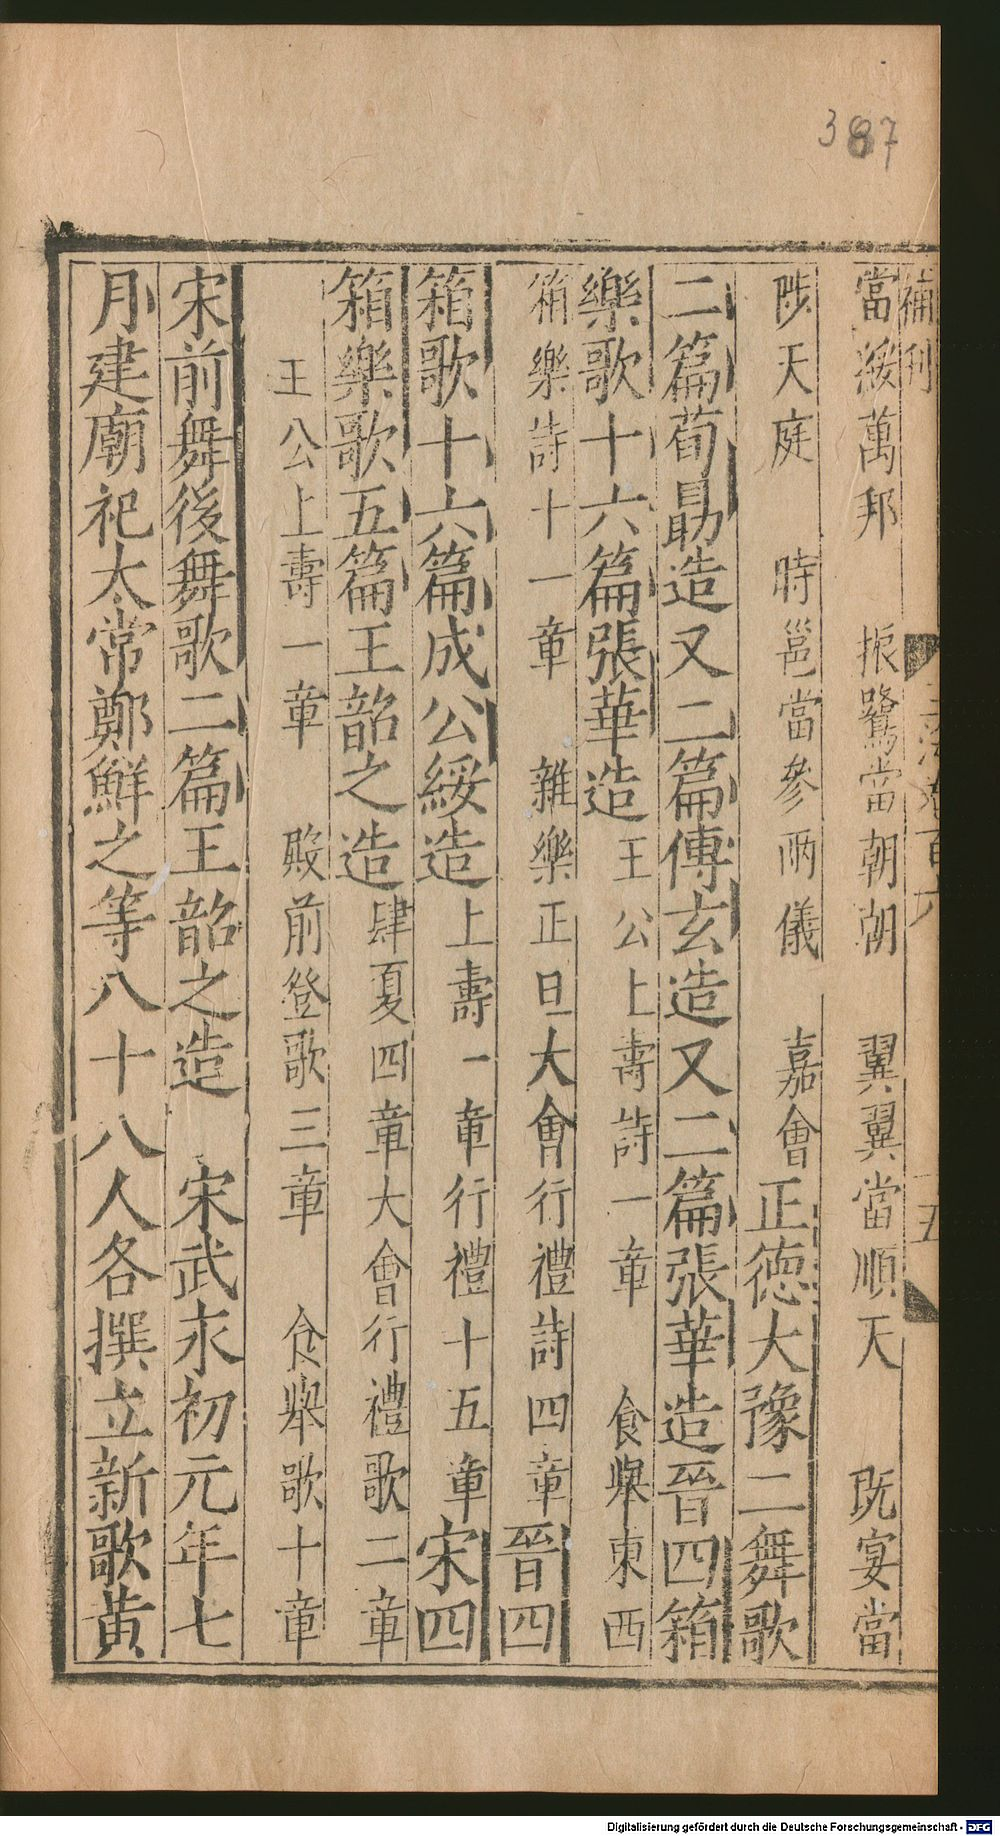 387
補刊
當綏萬邦　振鷺當朝朝　翼翼當順天　既宴當
陟天庭　時邕當參兩儀　嘉會正德大豫二舞歌
二篇荀勗造又二篇傅玄造又二篇張華造晉四箱
樂歌十六篇張華造王公上壽詩一章　食舉東西
箱樂詩十一章　雜樂正旦大會行禮詩四章晉四
箱歌十六篇成公綏造上壽一章行禮十五章宋四
箱樂歌五篇王韶之造肆夏四章大會行禮歌二章
王公上壽一章　殿前登歌三章　食舉歌十章
宋前舞後舞歌二篇王韶之造　宋武永初元年七
月建廟祀太常鄭鮮之等八十八人各撰立新歌黃
Digitalisierung gefördert durch die Deutsche Forschungsgemeinschaft - DFG